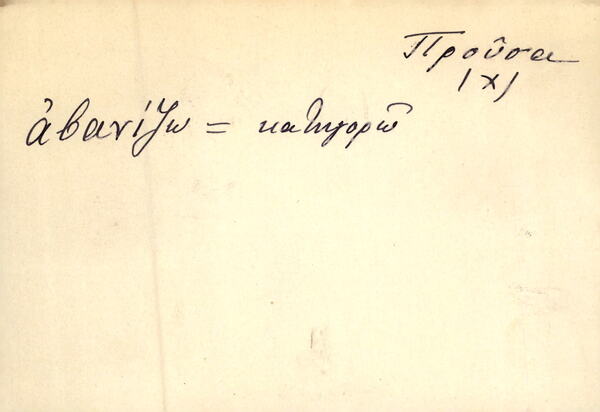 Προῦσα
(χ)
ἀβανίζω = κατηγορῶ